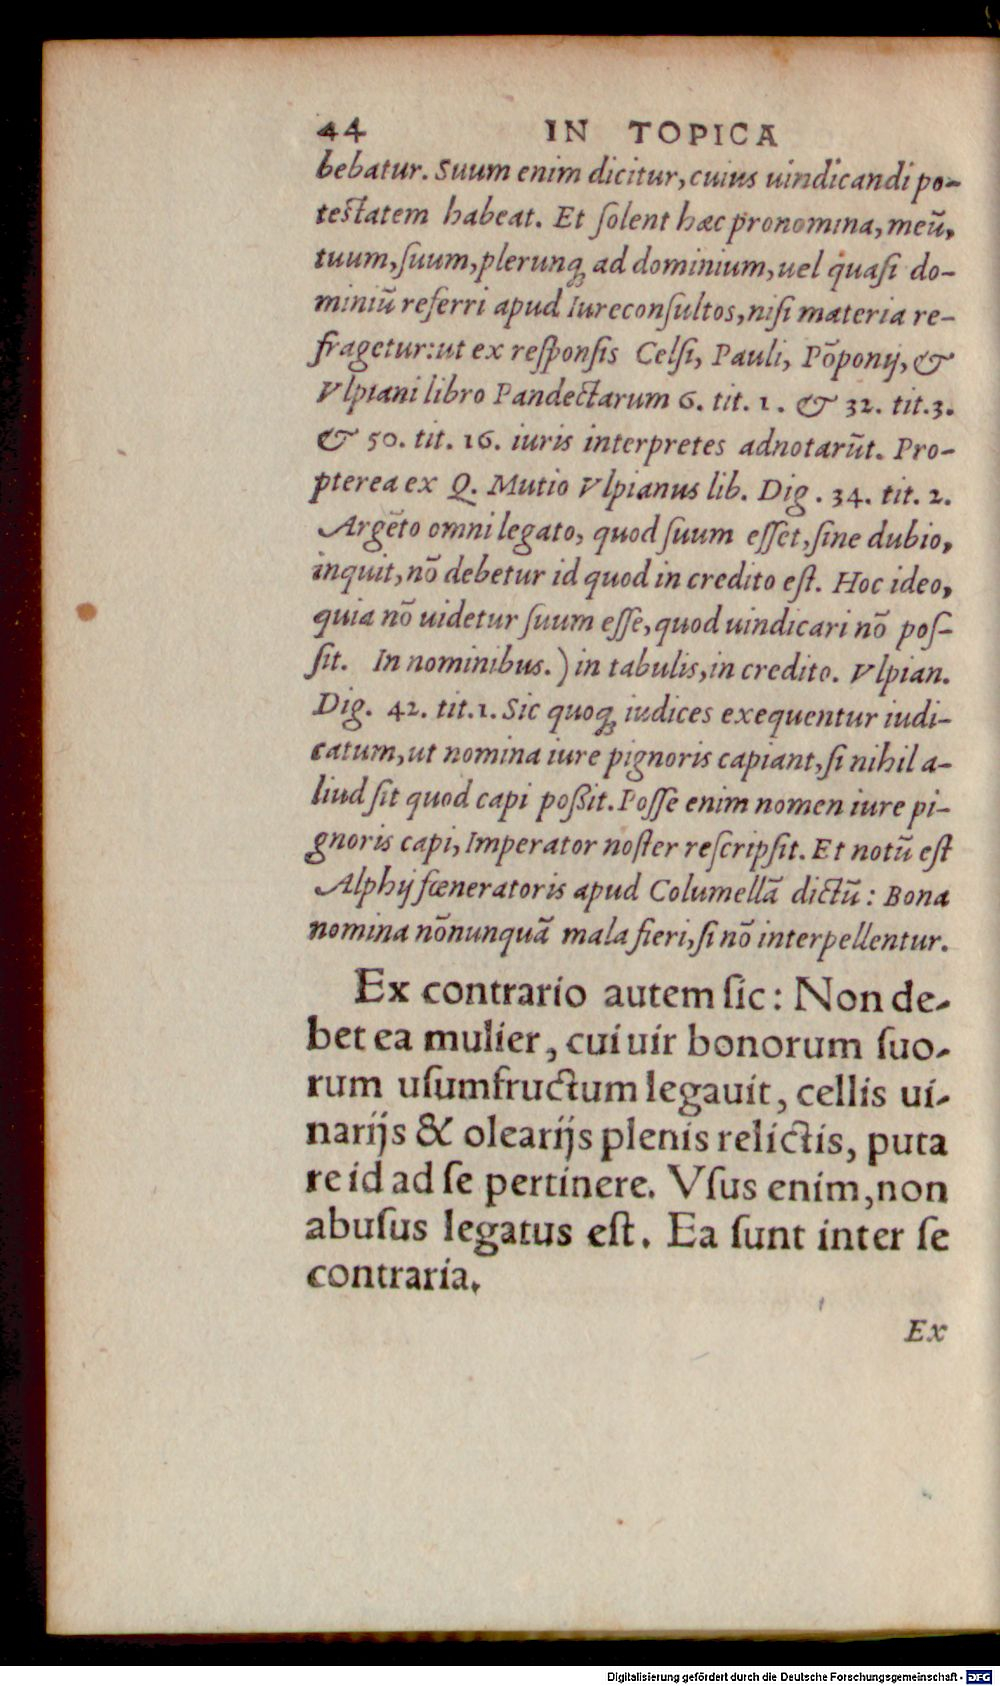 44 IN TOPICA
bebatur. Suum enim dicitur, cuius uindicandi po-
testatem habeat. Et ſolent hæc pronomina, meū,
tuum, ſuum, plerunq; ad dominium, uel quaſi do-
miniū referri apud Iureconſultos, niſi materia re-
fragetur: ut ex reſponſis Celſi, Pauli, Pōponij, &
Vlpiani libro Pandectarum 6. tit. 1. & 32. tit. 3.
& 50. tit. 16. iuris interpretes adnotarūt. Pro-
pterea ex Q. Mutio Vlpianus lib. Dig. 34. tit. 2.
Argēto omni legato, quod ſuum eſſet, ſine dubio,
inquit, nō debetur id quod in credito eſt. Hoc ideo,
quia nō uidetur ſuum eſſe, quod uindicari nō poſ-
ſit. In nominibus.) in tabulis, in credito. Vlpian.
Dig. 42. tit. 1. Sic quoq; iudices exequentur iudi-
catum, ut nomina iure pignoris capiant, ſi nihil a-
liud ſit quod capi poßit. Poſſe enim nomen iure pi-
gnoris capi, Imperator noſter reſcripſit. Et notū eſt
Alphij fœneratoris apud Columellā dictū: Bona
nomina nōnunquā mala fieri, ſi nō interpellentur.
Ex contrario autem ſic: Non de-
bet ea mulier, cui uir bonorum ſuo-
rum uſumfructum legauit, cellis ui-
narijs & olearijs plenis relictis, puta
re id ad ſe pertinere. Vſus enim, non
abuſus legatus eſt. Ea ſunt inter ſe
contraria.
Ex
Digitalisierung gefördert durch die Deutsche Forschungsgemeinschaft - DFG